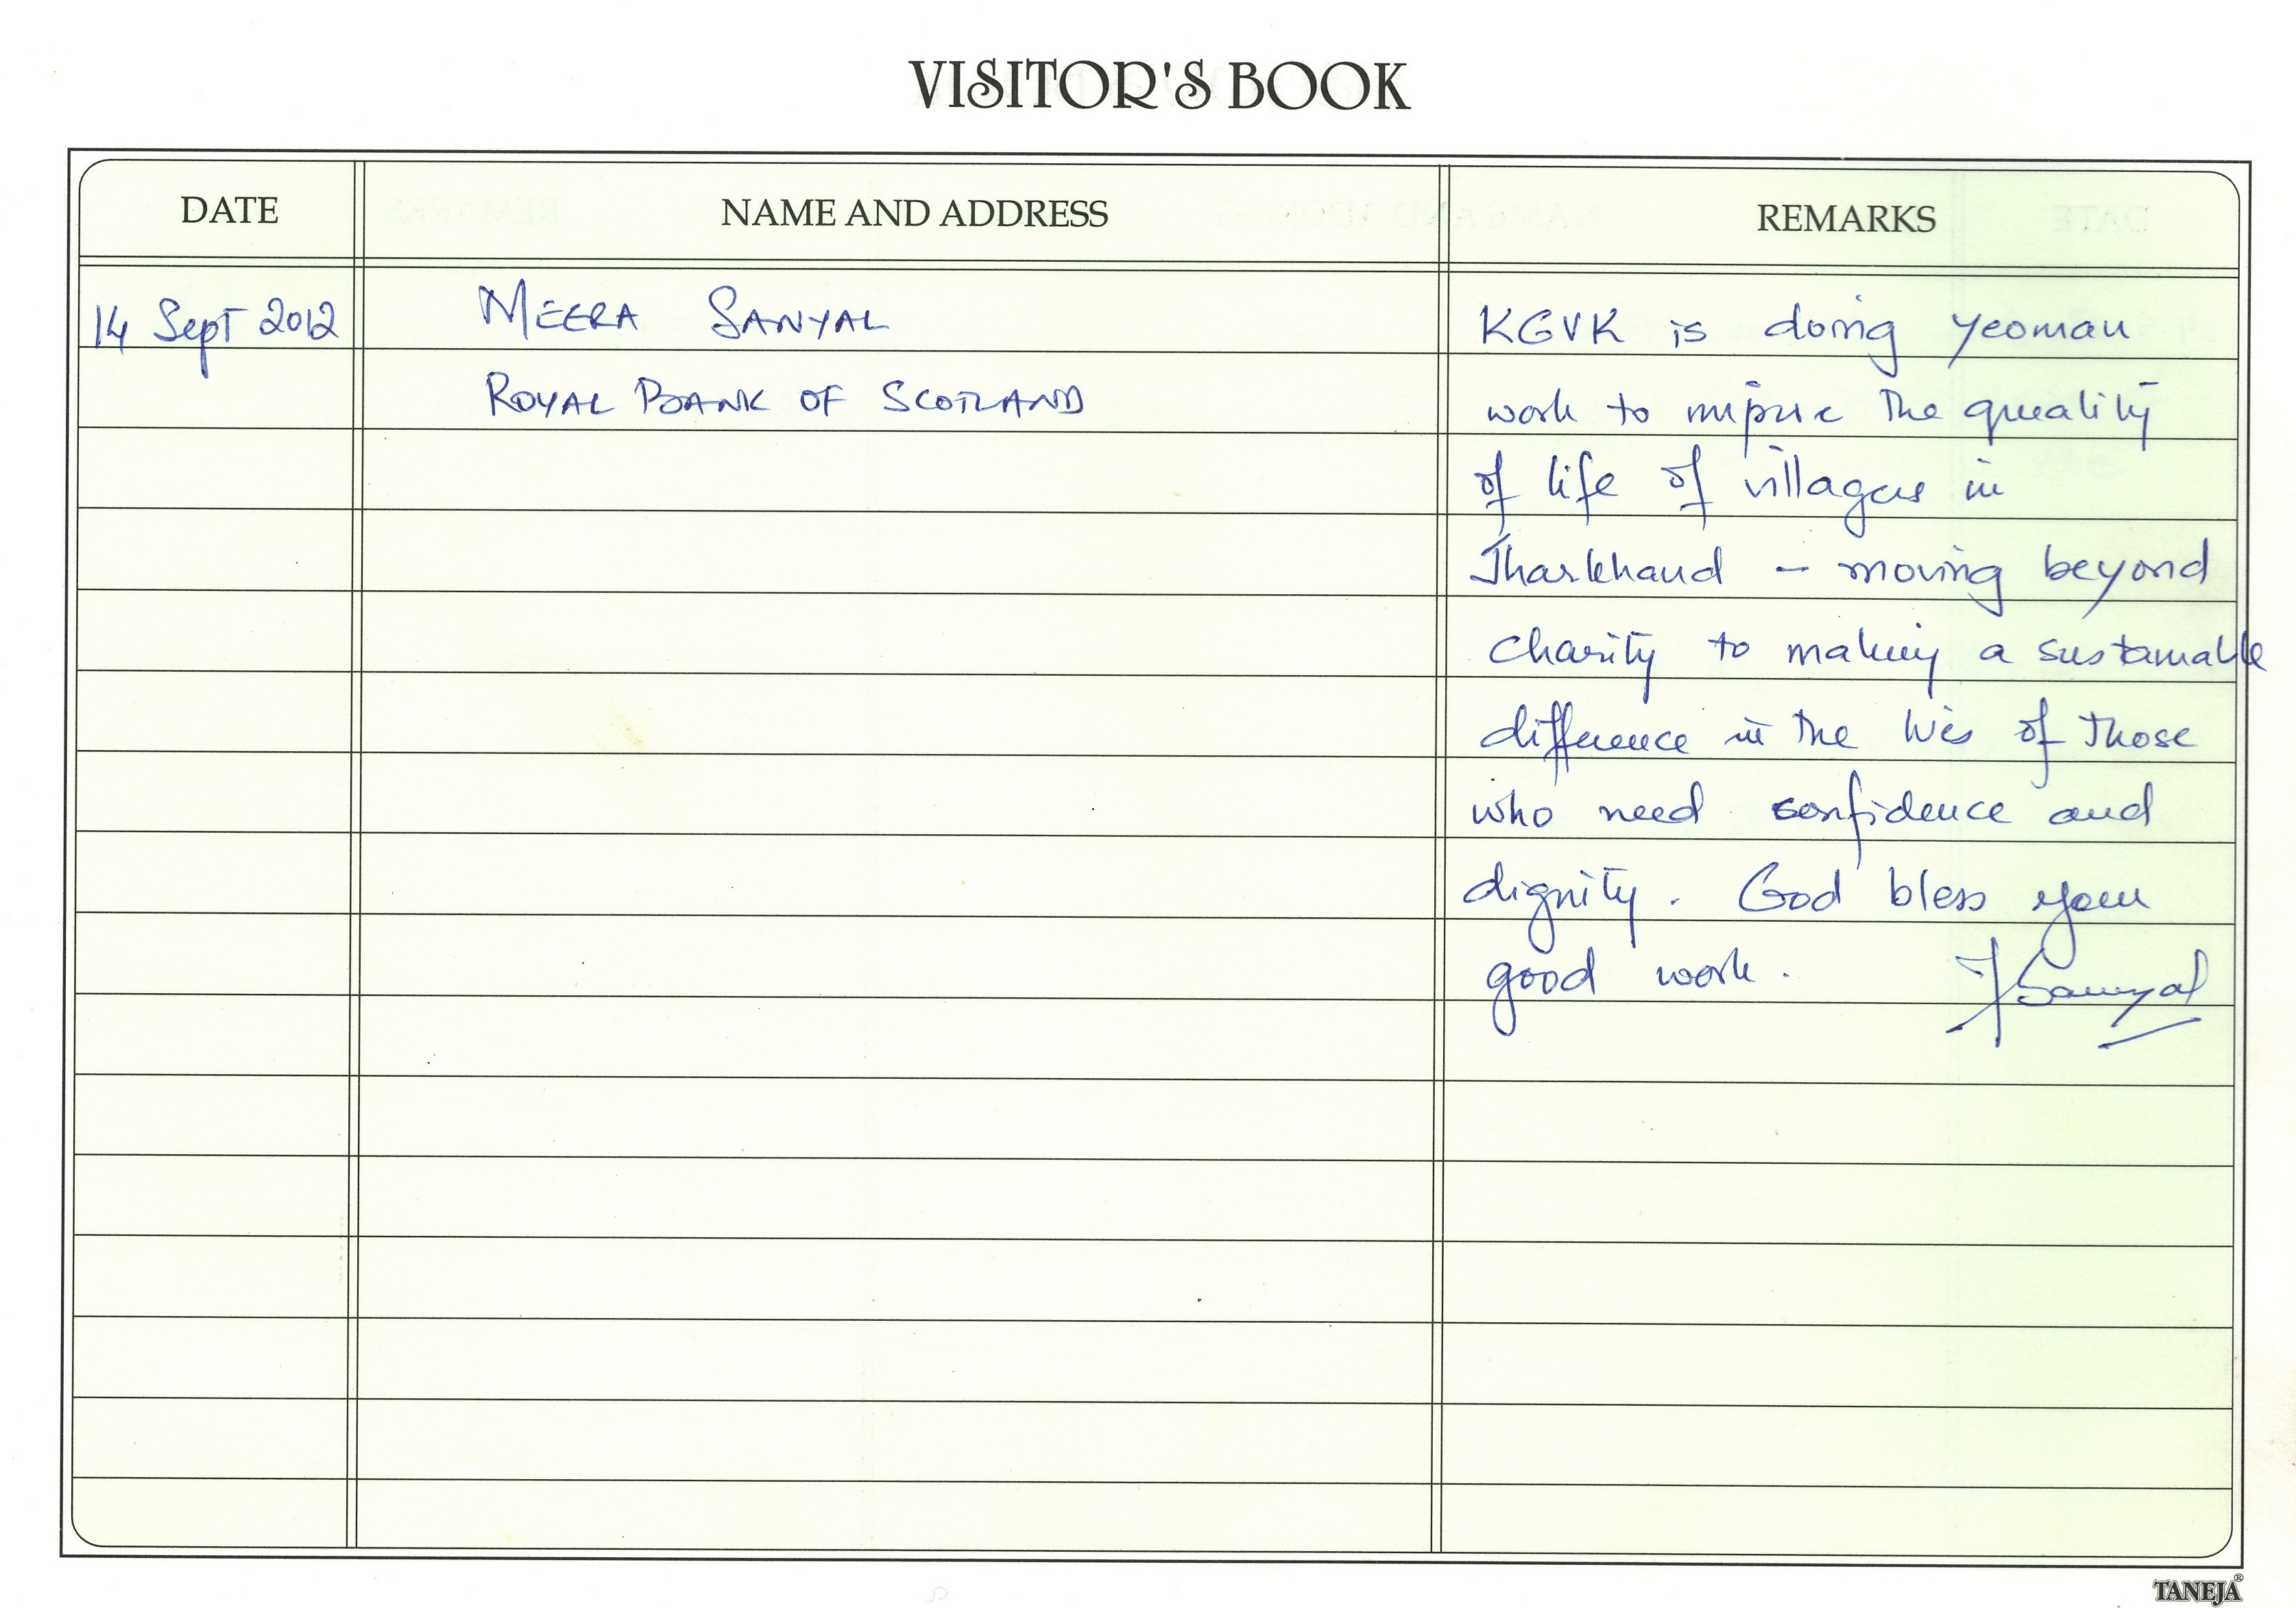 VISITOR'S BOOK
DATE NAME AND ADDRESS REMARKS
14 Sept 2012 MEERA SANYAL KGVK is doing yeoman
ROYAL BANK OF SCOTLAND work to improve the quality
of life of villages in
Jharkhand - moving beyond
charity to making a sustainable
difference in the lives of those
who need confidence and
dignity. God bless your
good work. Sanyal
TANEJA®